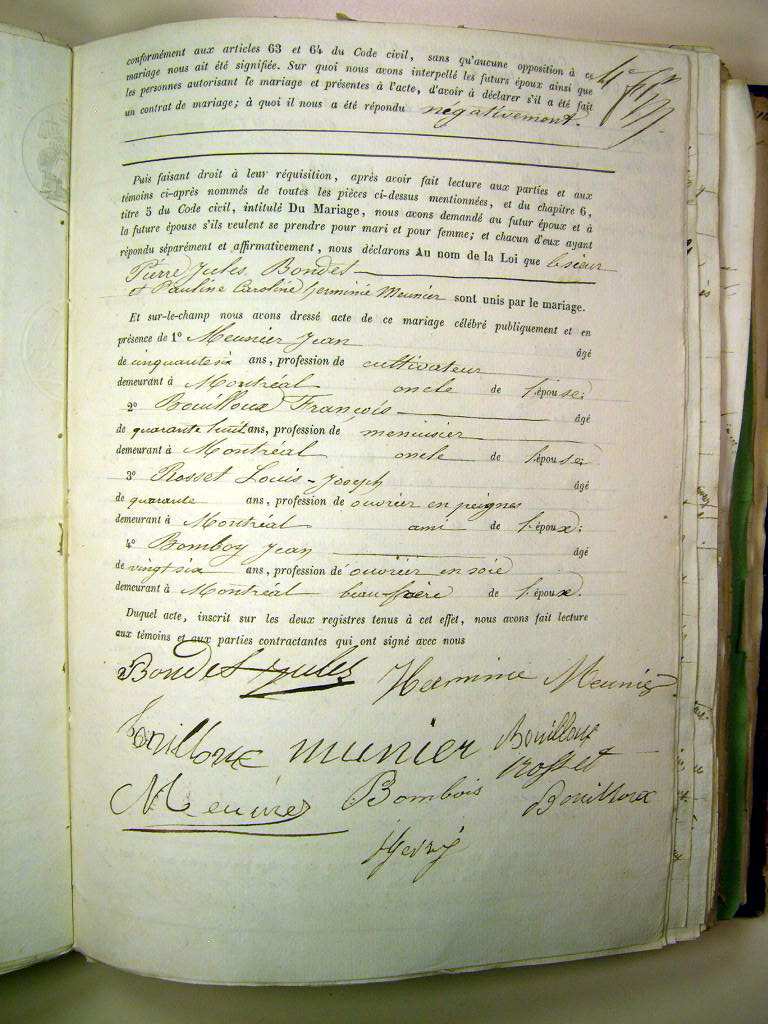 conformément aux articles 63 et 64 du Code civil, sans qu'aucune opposition à ce
mariage nous ait été signifiée. Sur quoi nous avons interpellé les futurs époux ainsi que
les personnes autorisant le mariage et présentes à l'acte, d'avoir à déclarer s'il a été fait
un contrat de mariage; à quoi il nous a été répondu négativement.
Puis faisant droit à leur réquisition, après avoir fait lecture aux parties et aux
témoins ci-après nommés de toutes les pièces ci-dessus mentionnées, et du chapitre 6,
titre 5 du Code civil, intitulé Du Mariage, nous avons demandé au futur époux et à
la future épouse s'ils veulent se prendre pour mari et pour femme; et chacun d'eux ayant
répondu séparément et affirmativement, nous déclarons Au nom de la Loi que le sieur
Pierre Jules Bondet
et Pauline Caroline herminie Meunier sont unis par le mariage.
Et sur-le-champ nous avons dressé acte de ce mariage célébré publiquement et en
présence de 1° Meunier Jean âgé
de cinquante six ans, profession de cultivateur
demeurant à Montréal oncle de l'épouse;
2° Bouilloux François âgé
de quarante huit ans, profession de menuisier
demeurant à Montréal oncle de l'épouse;
3° Rosset Louis-Joseph âgé
de quarante ans, profession de ouvrier en peignes
demeurant à Montréal ami de l'époux;
4° Bomboy Jean âgé
de vingt six ans, profession de ouvrier en soie
demeurant à Montréal beau-frère de l'époux.
Duquel acte, inscrit sur les deux registres tenus à cet effet, nous avons fait lecture
aux témoins et aux parties contractantes qui ont signé avec nous
Bondet Jules Hermine Meunier
Bouilloux munier Bouilloux
rosset
Meunier Bombois Bouilloux